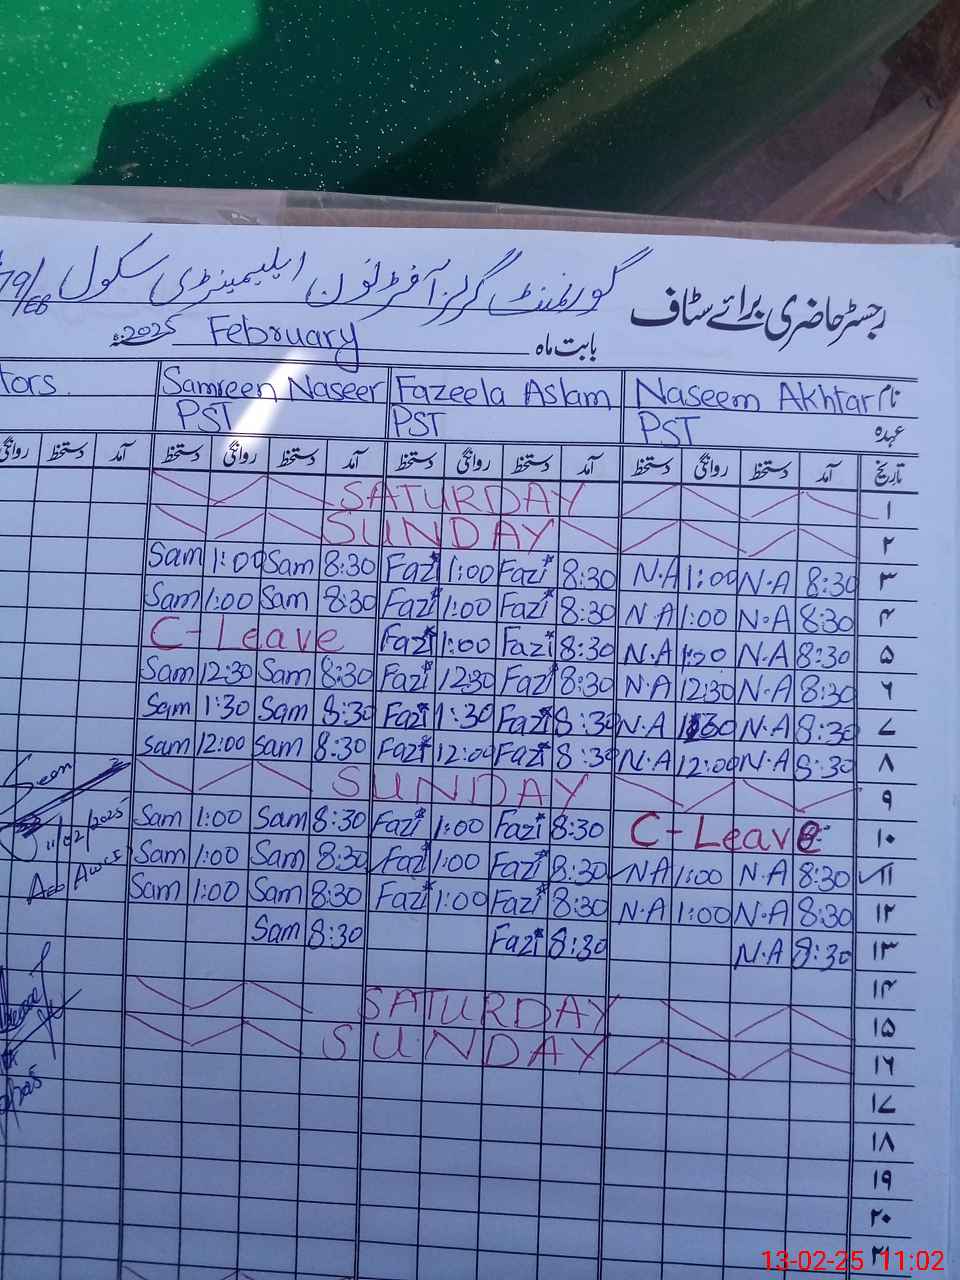 رجسٹر حاضری برائے سٹاف گورنمنٹ گرلز آفٹرنون ایلیمینٹری سکول 79/EB
بابت ماہ February 2025ء
نام Naseem Akhtar Fazeela Aslam Samreen Naseer tors.
عہدہ PST PST PST
تاریخ آمد دستخط روانگی دستخط آمد دستخط روانگی دستخط آمد دستخط روانگی دستخط آمد دستخط روانگی
۱ SATURDAY
۲ SUNDAY
۳ 8:30 N.A 1:00 N.A 8:30 Fazi* 1:00 Fazi* 8:30 Sam 1:00 Sam
۴ 8:30 N.A 1:00 N.A 8:30 Fazi* 1:00 Fazi* 8:30 Sam 1:00 Sam
۵ 8:30 N.A 1:00 N.A 8:30 Fazi* 1:00 Fazi* C-Leave
۶ 8:30 N.A 12:30 N.A 8:30 Fazi* 1230 Fazi* 8:30 Sam 12:30 Sam
۷ 8:30 N.A 1:30 N.A 8:30 Fazi* 1:30 Fazi* 8:30 Sam 1:30 Sam
۸ 8:30 N.A 12:00 N.A 8:30 Fazi* 12:00 Fazi* 8:30 Sam 12:00 Sam
۹ SUNDAY
Seen
۱۰ C-Leave 8:30 Fazi* 1:00 Fazi* 8:30 Sam 1:00 Sam
11/02/2025
۱۱ 8:30 N.A 1:00 NA 8:30 Fazi* 1:00 Fazi* 8:30 Sam 1:00 Sam
۱۲ 8:30 N.A 1:00 N.A 8:30 Fazi* 1:00 Fazi* 8:30 Sam 1:00 Sam
۱۳ 8:30 N.A 8:30 Fazi* 8:30 Sam
۱۴
۱۵ SATURDAY
۱۶ SUNDAY
۱۷
۱۸
۱۹
۲۰
۲۱
13-02-25 11:02